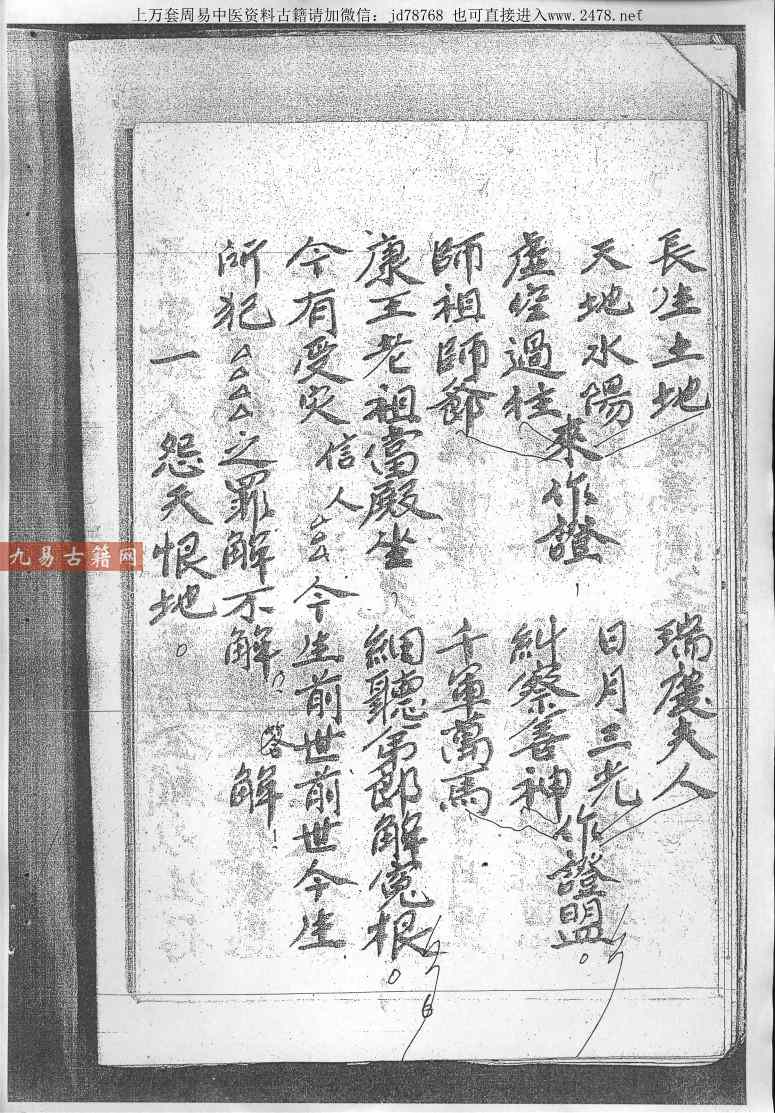 上万套周易中医资料古籍请加微信：jd78768 也可直接进入www.2478.net
長生土地 瑞慶夫人
天地水陽 日月三光
來作證， 作證盟。
虛空過往 糾察善神
師祖師爺 千軍萬馬
康王老祖當殿坐，細聽弟郎解冤根。
今有受灾信人 今生前世前世今生
所犯△△△△之罪解不解。答解！
一 怨天恨地。
九易古籍网